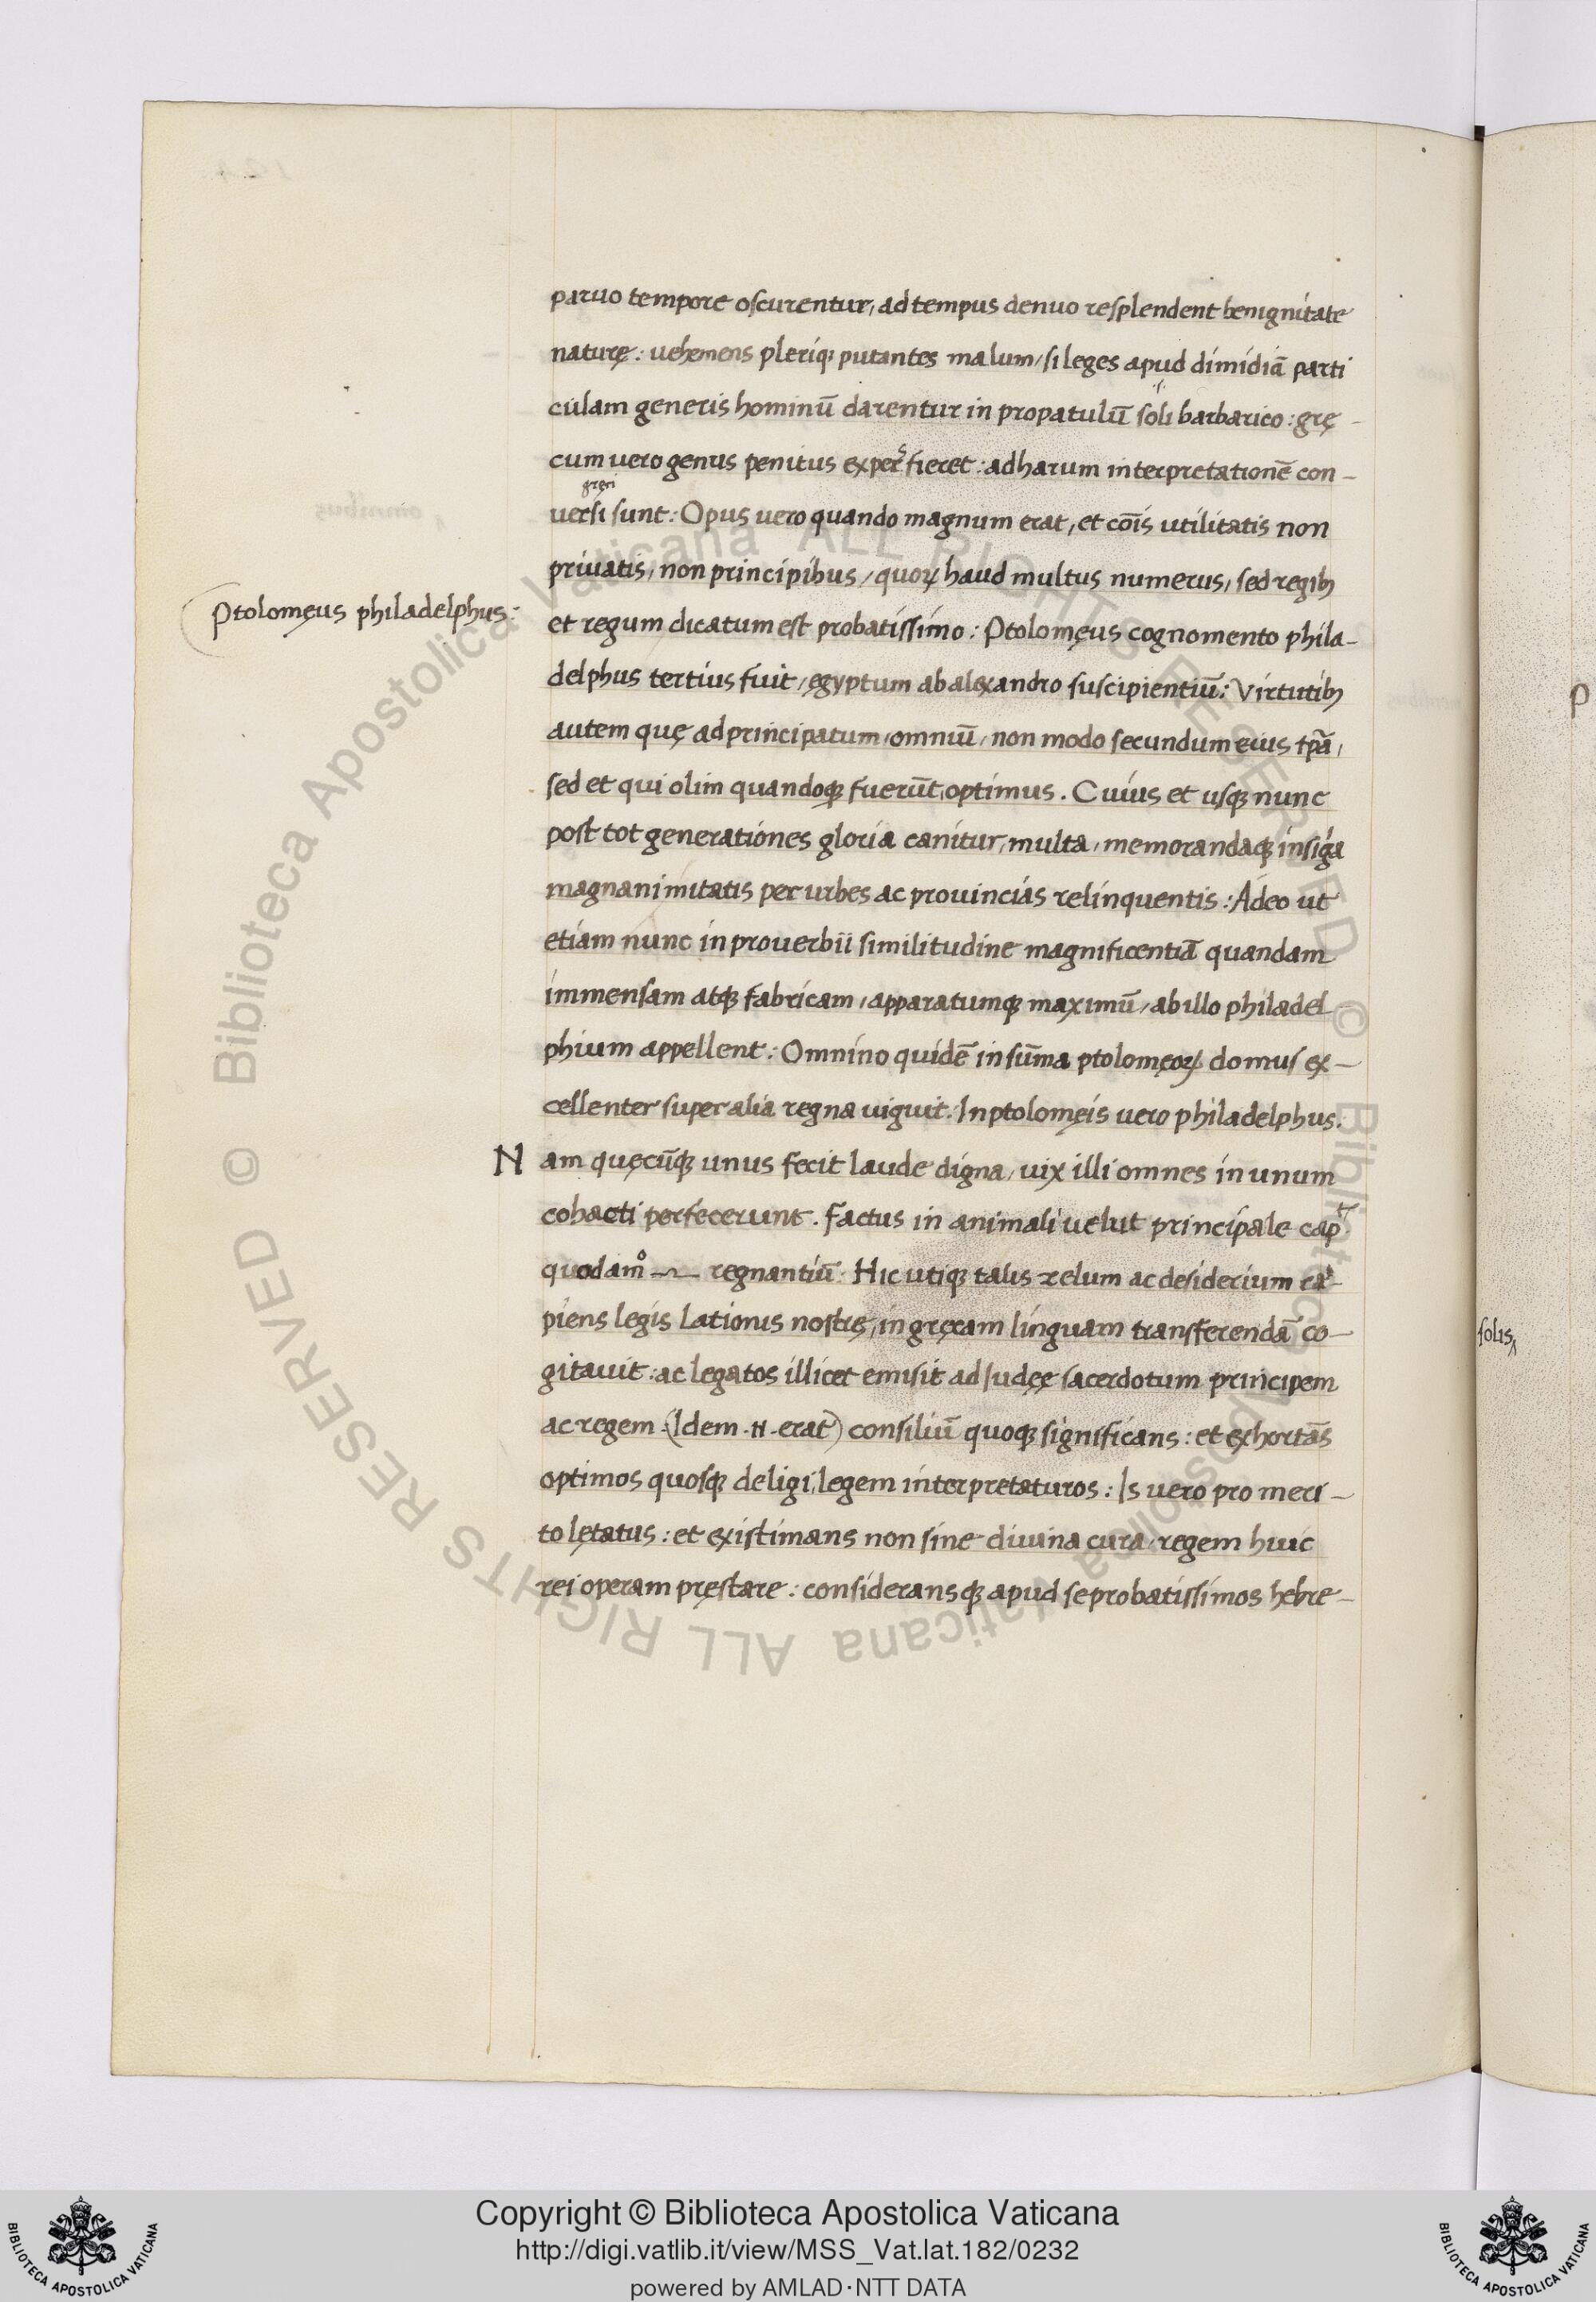 paruo tempore oscurentur, ad tempus denuo resplendent benignitate
naturę: uehemens pleriq; putantes malum/ si leges apud dimidiā parti
culam generis hominū darentur in propatulū soli barbarico: grę-
cum uero genus penitus expers fieret: ad harum interpretationē con-
gręci
uersi sunt: Opus uero quando magnum erat, et cōīs utilitatis non
priuatis, non principibus, quoꝝ haud multus numerus, sed regibꝫ
Ptolomęus philadelphus:
et regum dicatum est probatissimo: Ptolomęus cognomento phila-
delphus tertius fuit, ęgyptum ab alexandro suscipientiū: Virtutibꝫ
autem quę ad principatum, omniū, non modo secundum eius tpā,
sed et qui olim quandoq; fuerūt, optimus. Cuius et usq; nunc
post tot generationes gloria canitur, multa, memorandaq; insiga
magnanimitatis per urbes ac prouincias relinquentis: Adeo ut
etiam nunc in prouerbii similitudine magnificentiā quandam
immensam atq; fabricam, apparatumq; maximū, ab illo philadel
phium appellent: Omnino quidē in sūma ptolomęoꝝ domus ex-
cellenter super alia regna uiguit. In ptolomęis uero philadelphus.
Nam quęcūq; unus fecit laude digna, uix illi omnes in unum
cohacti perfecerunt. factus in animali uelut principale capᵗ
quodamᵒ regnantiū: Hic utiq; talis zelum ac desiderium ca-
piens legis lationis nostrę, in gręcam linguam transferendā co-
gitauit: ac legatos illicet emisit ad Iudęę sacerdotum principem
ac regem (Idem .n. erat) consiliū quoq; significans: et exhortās
optimos quosq; deligi, legem interpretaturos: Is uero pro meri-
to lętatus: et existimans non sine diuina cura, regem huic
rei operam pręstare: consideransq; apud se probatissimos hebre-
solis
P
Copyright © Biblioteca Apostolica Vaticana
http://digi.vatlib.it/view/MSS_Vat.lat.182/0232
powered by AMLAD·NTT DATA